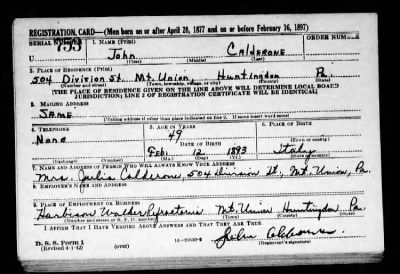 REGISTRATION CARD—(Men born on or after April 28, 1877 and on or before February 16, 1897)
SERIAL NUMBER 1. NAME (Print) ORDER NUMBER
U John CALDERONE
(First) (Middle) (Last)
2. PLACE OF RESIDENCE (Print)
504 Division St. Mt. Union, Huntingdon Pa.
(Number and street) (Town, township, village, or city) (County) (State)
[THE PLACE OF RESIDENCE GIVEN ON THE LINE ABOVE WILL DETERMINE LOCAL BOARD
JURISDICTION; LINE 2 OF REGISTRATION CERTIFICATE WILL BE IDENTICAL]
3. MAILING ADDRESS
SAME
[Mailing address if other than place indicated on line 2. If same insert word same]
4. TELEPHONE 5. AGE IN YEARS 6. PLACE OF BIRTH
None 49
DATE OF BIRTH (Town or county)
Feb. 12 1893 Italy
(Exchange) (Number) (Mo.) (Day) (Yr.) (State or country)
7. NAME AND ADDRESS OF PERSON WHO WILL ALWAYS KNOW YOUR ADDRESS
Mrs. Julia Calderone, 504 Division St., Mt. Union, Pa.
8. EMPLOYER'S NAME AND ADDRESS
Harbison Walker Refractories Mt. Union Huntingdon, Pa.
9. PLACE OF EMPLOYMENT OR BUSINESS
(Number and street or R. F. D. number) (Town) (County) (State)
I AFFIRM THAT I HAVE VERIFIED ABOVE ANSWERS AND THAT THEY ARE TRUE.
D. S. S. Form 1
(Revised 4-1-42) (over)